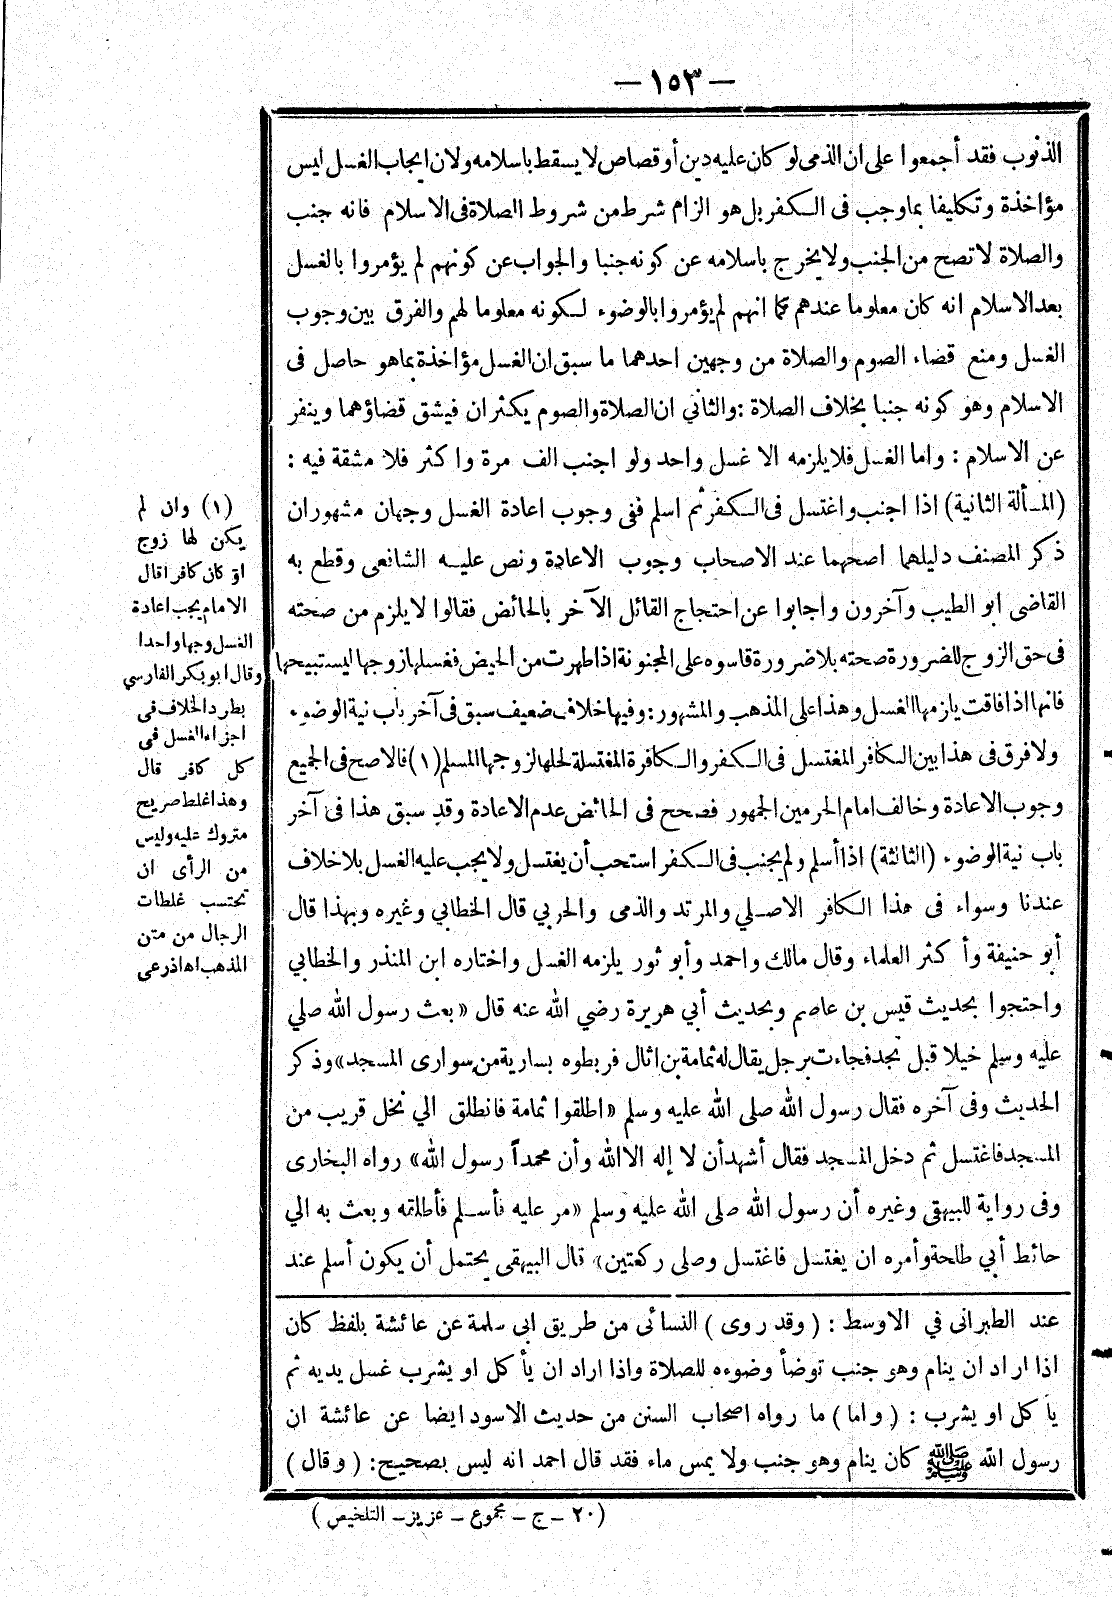 — ١٥٣ —
الذنوب فقد أجمعوا على ان الذمى لو كان عليه دين أو قصاص لا يسقط باسلامه ولان ايجاب الغسل ليس
مؤاخذة وتكليفا بما وجب فى الكفر بل هو الزام شرط من شروط الصلاة فى الاسلام فانه جنب
والصلاة لا تصح من الجنب ولا يخرج باسلامه عن كونه جنبا والجواب عن كونهم لم يؤمروا بالغسل
بعد الاسلام انه كان معلوما عندهم كما انهم لم يؤمروا بالوضوء لكونه معلوما لهم والفرق بين وجوب
الغسل ومنع قضاء الصوم والصلاة من وجهين احدهما ما سبق ان الغسل مؤاخذة بما هو حاصل فى
الاسلام وهو كونه جنبا بخلاف الصلاة : والثاني ان الصلاة والصوم يكثران فيشق قضاؤهما وينفر
عن الاسلام : واما الغسل فلا يلزمه الا غسل واحد ولو اجنب الف مرة واكثر فلا مشقة فيه :
(المسألة الثانية) اذا اجنب واغتسل فى الكفر ثم اسلم ففى وجوب اعادة الغسل وجهان مشهوران
ذكر المصنف دليلهما اصحهما عند الاصحاب وجوب الاعادة ونص عليه الشافعى وقطع به
القاضى ابو الطيب وآخرون وأجابوا عن احتجاج القائل الآخر بالحائض فقالوا لا يلزم من صحته
فى حق الزوج للضرورة صحته بلا ضرورة قاسوه على المجنونة اذا طهرت من الحيض فغسلها زوجها ليستبيحها
فانها اذا فاقت يلزمها الغسل وهذا على المذهب والمشهور : وفيها خلاف ضعيف سبق فى آخر باب نية الوضوء
ولا فرق فى هذا بين الكافر المغتسل فى الكفر والكافرة المغتسلة لحلها لزوجها المسلم (١) فالاصح فى الجميع
وجوب الاعادة وخالف امام الحرمين الجمهور فصحح فى الحائض عدم الاعادة وقد سبق هذا فى آخر
باب نية الوضوء (الثالثة) اذا أسلم ولم يجنب فى الكفر استحب أن يغتسل ولا يجب عليه الغسل بلا خلاف
عندنا وسواء فى هذا الكافر الاصلي والمرتد والذمى والحربي قال الخطابي وغيره وبهذا قال
أبو حنيفة وأكثر العلماء وقال مالك واحمد وأبو ثور يلزمه الغسل واختاره ابن المنذر والخطابي
واحتجوا بحديث قيس بن عاصم وبحديث أبي هريرة رضي الله عنه قال « بعث رسول الله صلي
عليه وسلم خيلا قبل نجد فجاءت برجل يقال له ثمامة بن اثال فربطوه بسارية من سوارى المسجد» وذكر
الحديث وفى آخره فقال رسول الله صلى الله عليه وسلم «اطلقوا ثمامة فانطلق الي نخل قريب من
المسجد فاغتسل ثم دخل المسجد فقال أشهد أن لا إله الا الله وأن محمداً رسول الله» رواه البخارى
وفى رواية للبيهقى وغيره أن رسول الله صلى الله عليه وسلم «مر عليه فأسلم فأطلقه وبعث به الي
حائط أبي طلحة وأمره ان يغتسل فاغتسل وصلى ركعتين» قال البيهقى يحتمل أن يكون أسلم عند
(١) وان لم
يكن لها زوج
او كان كافرا قال
الامام يجب اعادة
الغسل وجها واحدا
وقال ابو بكر الفارسي
بطرد الخلاف فى
اجزاء الغسل فى
كل كافر قال
وهذا غلط صريح
متروك عليه وليس
من الرأى ان
تحتسب غلطات
الرجال من متن
المذهب اه اذرعى
عند الطبرانى في الاوسط : ( وقد روى ) النسائى من طريق ابى سلمة عن عائشة بلفظ كان
اذا اراد ان ينام وهو جنب توضأ وضوءه للصلاة واذا اراد ان يأكل او يشرب غسل يديه ثم
يأكل او يشرب : ( واما ) ما رواه اصحاب السنن من حديث الاسود ايضا عن عائشة ان
رسول الله ﷺ كان ينام وهو جنب ولا يمس ماء فقد قال احمد انه ليس بصحيح : ( وقال )
(٢٠ ـ ج ـ مجموع ـ عزيز ـ التلخيص )